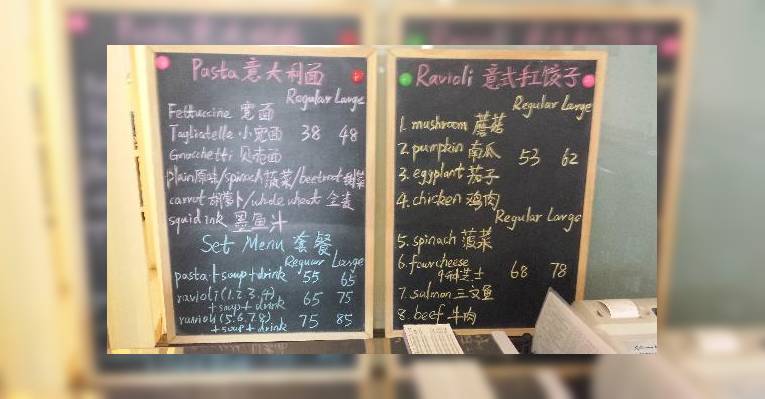 Pasta 意大利面
Regular Large
Fettuccine 宽面
Tagliatelle 小宽面 38 48
Gnocchetti 贝壳面
plain原味/spinach菠菜/beetroot甜菜
carrot 胡萝卜/whole wheat 全麦
squid ink 墨鱼汁
Set Menu 套餐
Reguar Large
pasta+soup+drink 55 65
ravioli(1.2.3.4) 65 75
+soup+drink
ravioli(5.6.7.8) 75 85
+soup+drink
Ravioli 意式手工饺子
Regular Large
1. mushroom 蘑菇
2. pumpkin 南瓜 53 62
3. eggplant 茄子
4. chicken 鸡肉
Regular Large
5. spinach 菠菜
6. four cheese 68 78
芝士
7. salmon 三文鱼
8. beef 牛肉